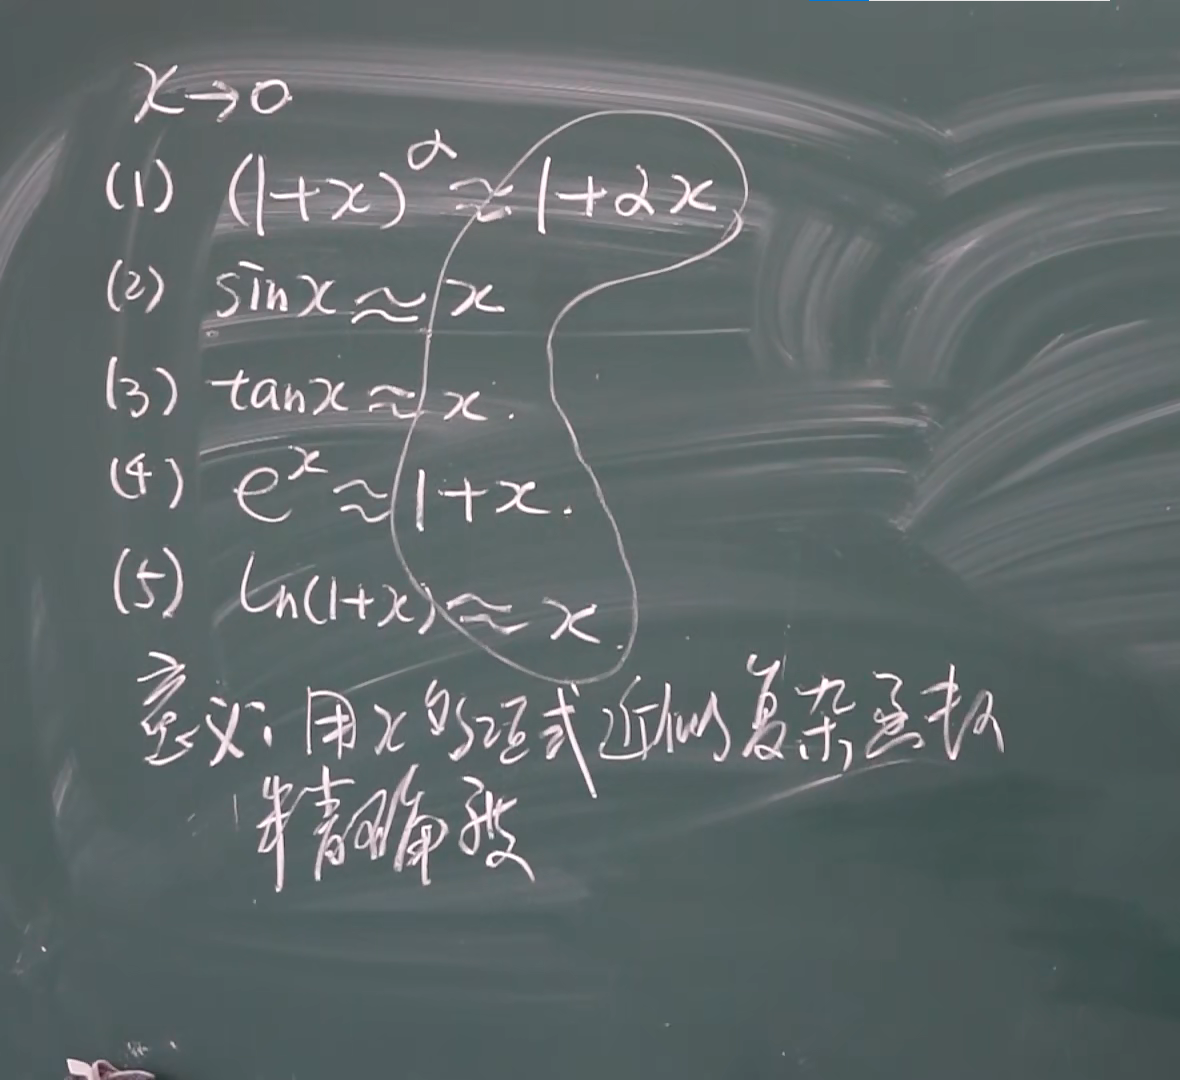 x→0
(1) (1+x)^α ≈ 1+αx
(2) sinx ≈ x
(3) tanx ≈ x.
(4) e^x ≈ 1+x.
(5) ln(1+x) ≈ x.
意义: 用x的多项式近似复杂函数
精确度